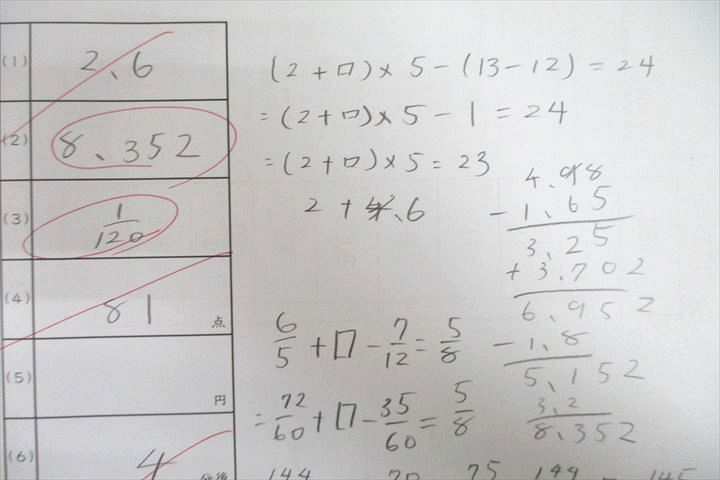 (1) 2、6
(2) 8、352
(3) 1/120
(4) 81 点
(5) 円
(6) 4 分後
(2+□)×5-(13-12)=24
=(2+□)×5-1=24
=(2+□)×5=23
2+ 、6
4、 8
-1、65
3、25
+3、702
6、952
-1、8
5、152
3、2
8、352
6/5+□-7/12=5/8
=72/60+□-35/60=5/8
144 70 75 144 = 145